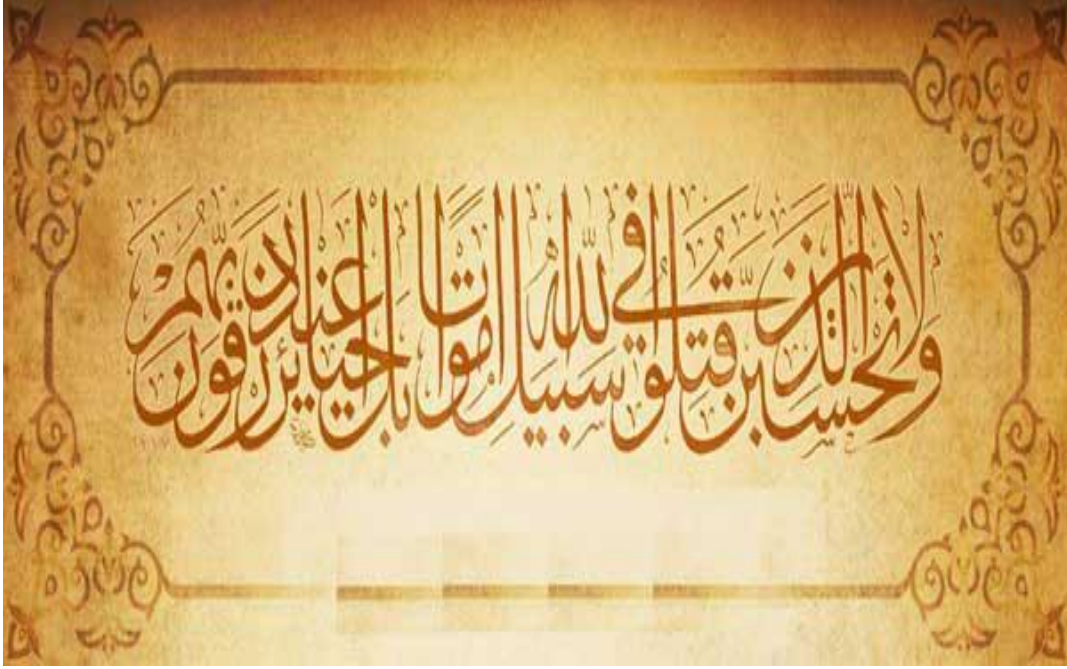 ولا تحسبن الذين قتلوا في سبيل الله أمواتا بل أحياء عند ربهم يرزقون